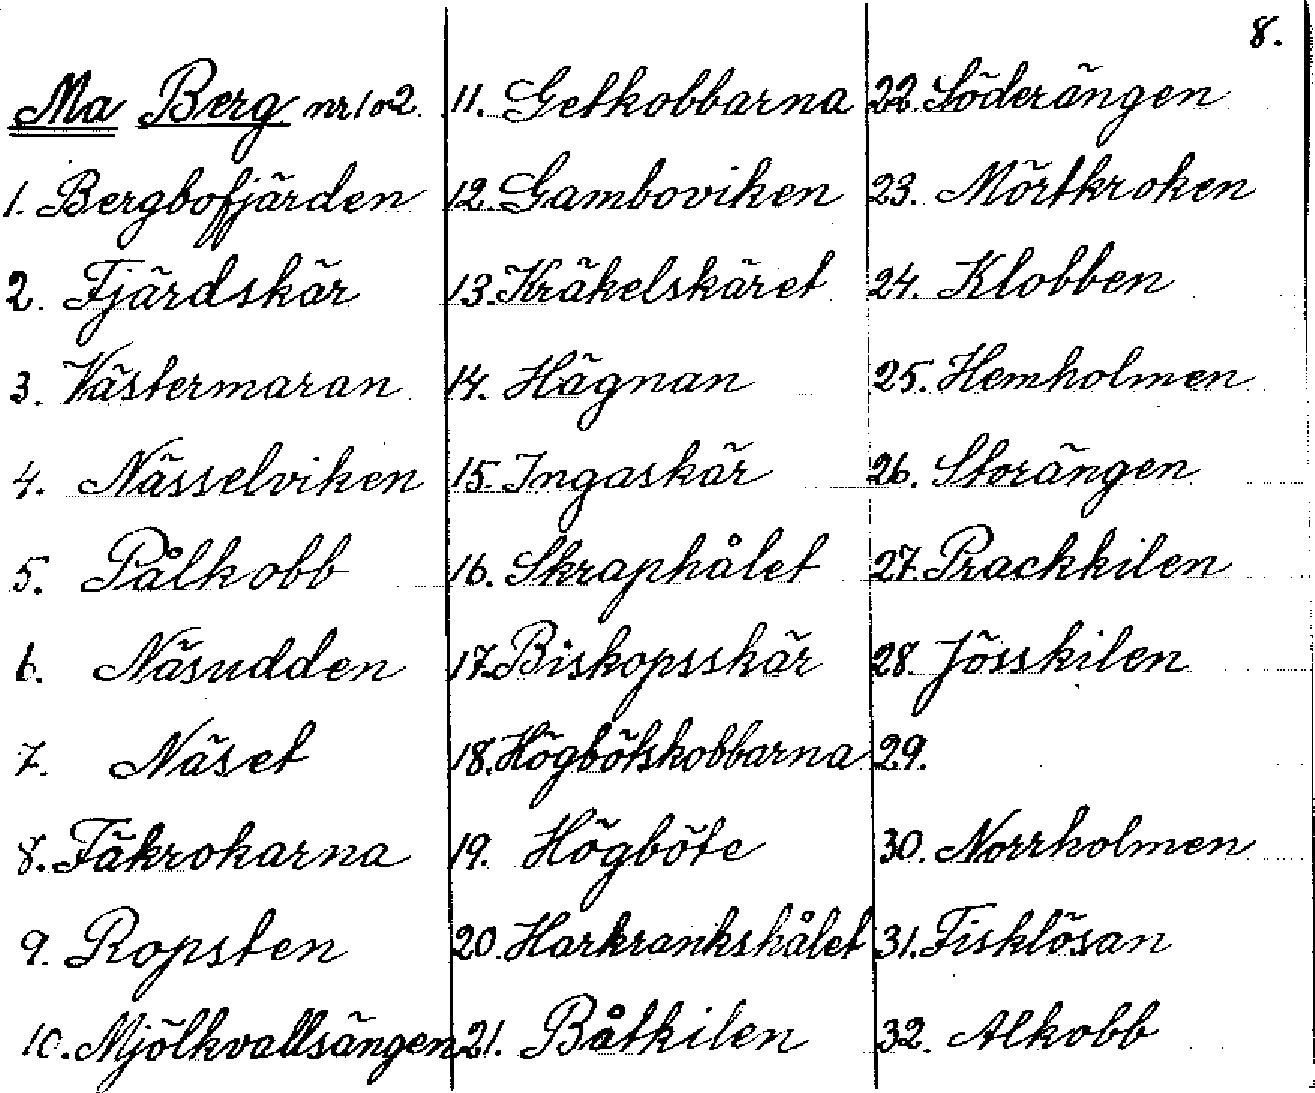 8.
Ma Berg nr 1 o 2.
1. Bergbofjärden
2. Fjärdskär
3. Västermaran
4. Nässelviken
5. Pålkobb
6. Näsudden
7. Näset
8. Fäkrokarna
9. Ropsten
10. Mjölkvallsängen
11. Getkobbarna
12. Gamboviken
13. Kräkelskäret
14. Hägnan
15. Ingaskär
16. Skraphålet
17. Biskopsskär
18. Högbötskobbarna
19. Högböte
20. Harkrankshålet
21. Båtkilen
22. Söderängen
23. Mörtkroken
24. Klobben
25. Hemholmen
26. Storängen
27. Prackkilen
28. Jösskilen
29.
30. Norrholmen
31. Fisklösan
32. Alkobb